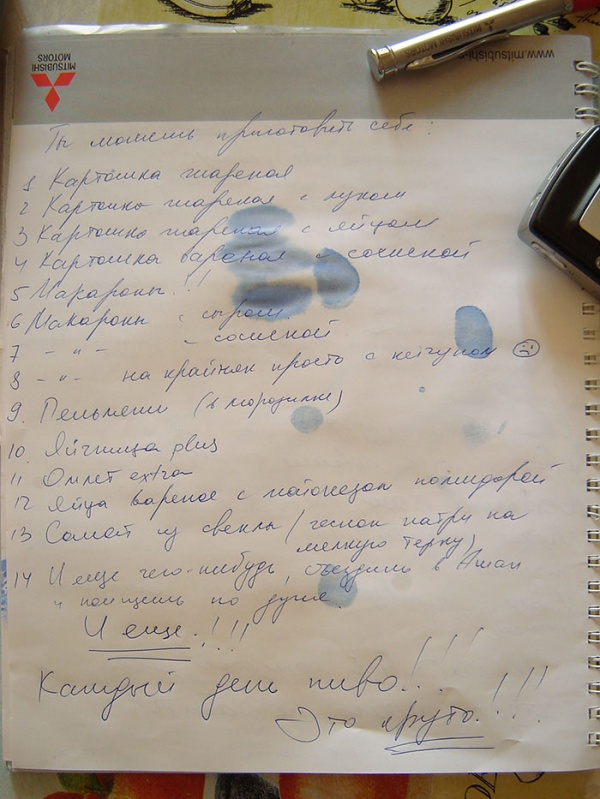 www.mitsubishi-m
MITSUBISHI
MOTORS
MITSUBISHI MOTORS
Ты можешь приготовить себе:
1 Картошка жареная
2 Картошка жареная с луком
3 Картошка жареная с яйцом
4 Картошка вареная с сосиской
5 Макароны!!
6 Макароны с сыром
7 -"- с сосиской
8 -"- на крайняк просто с кетчупом ☹
9. Пельмени (в морозилке)
10. Яйчница plus
11 Омлет extra
12 Яйца вареное с майонезом помидорой
13 Салат из свеклы (чеснок натри на
мелкую терку)
14 И еще чего-нибудь, съездишь в Ашан
и поищешь по душе.
И еще!!!!
Каждый день пиво!...!!!
Это круто.!!!